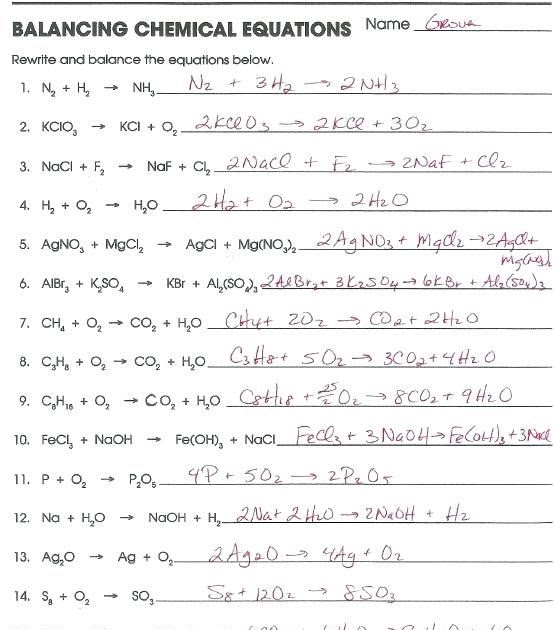 BALANCING CHEMICAL EQUATIONS Name Grove
Rewrite and balance the equations below.
1. N₂ + H₂ → NH₃ N₂ + 3H₂ → 2NH₃
2. KClO₃ → KCl + O₂ 2KClO₃ → 2KCl + 3O₂
3. NaCl + F₂ → NaF + Cl₂ 2NaCl + F₂ → 2NaF + Cl₂
4. H₂ + O₂ → H₂O 2H₂ + O₂ → 2H₂O
5. AgNO₃ + MgCl₂ → AgCl + Mg(NO₃)₂ 2AgNO₃ + MgCl₂ → 2AgCl +
Mg(NO₃)₂
6. AlBr₃ + K₂SO₄ → KBr + Al₂(SO₄)₃ 2AlBr₃ + 3K₂SO₄ → 6KBr + Al₂(SO₄)₃
7. CH₄ + O₂ → CO₂ + H₂O CH₄ + 2O₂ → CO₂ + 2H₂O
8. C₃H₈ + O₂ → CO₂ + H₂O C₃H₈ + 5O₂ → 3CO₂ + 4H₂O
9. C₈H₁₈ + O₂ → CO₂ + H₂O C₈H₁₈ + 25/2 O₂ → 8CO₂ + 9H₂O
10. FeCl₃ + NaOH → Fe(OH)₃ + NaCl FeCl₃ + 3NaOH → Fe(OH)₃ + 3NaCl
11. P + O₂ → P₂O₅ 4P + 5O₂ → 2P₂O₅
12. Na + H₂O → NaOH + H₂ 2Na + 2H₂O → 2NaOH + H₂
13. Ag₂O → Ag + O₂ 2Ag₂O → 4Ag + O₂
14. S₈ + O₂ → SO₃ S₈ + 12O₂ → 8SO₃